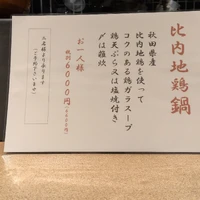 比内地鶏鍋
秋田県産
比内地鶏を使って
コクのある鶏ガラスープ
鶏天ぷら又は塩焼付き
〆は雑炊
お一人様
税別6000円
二名様より承ります